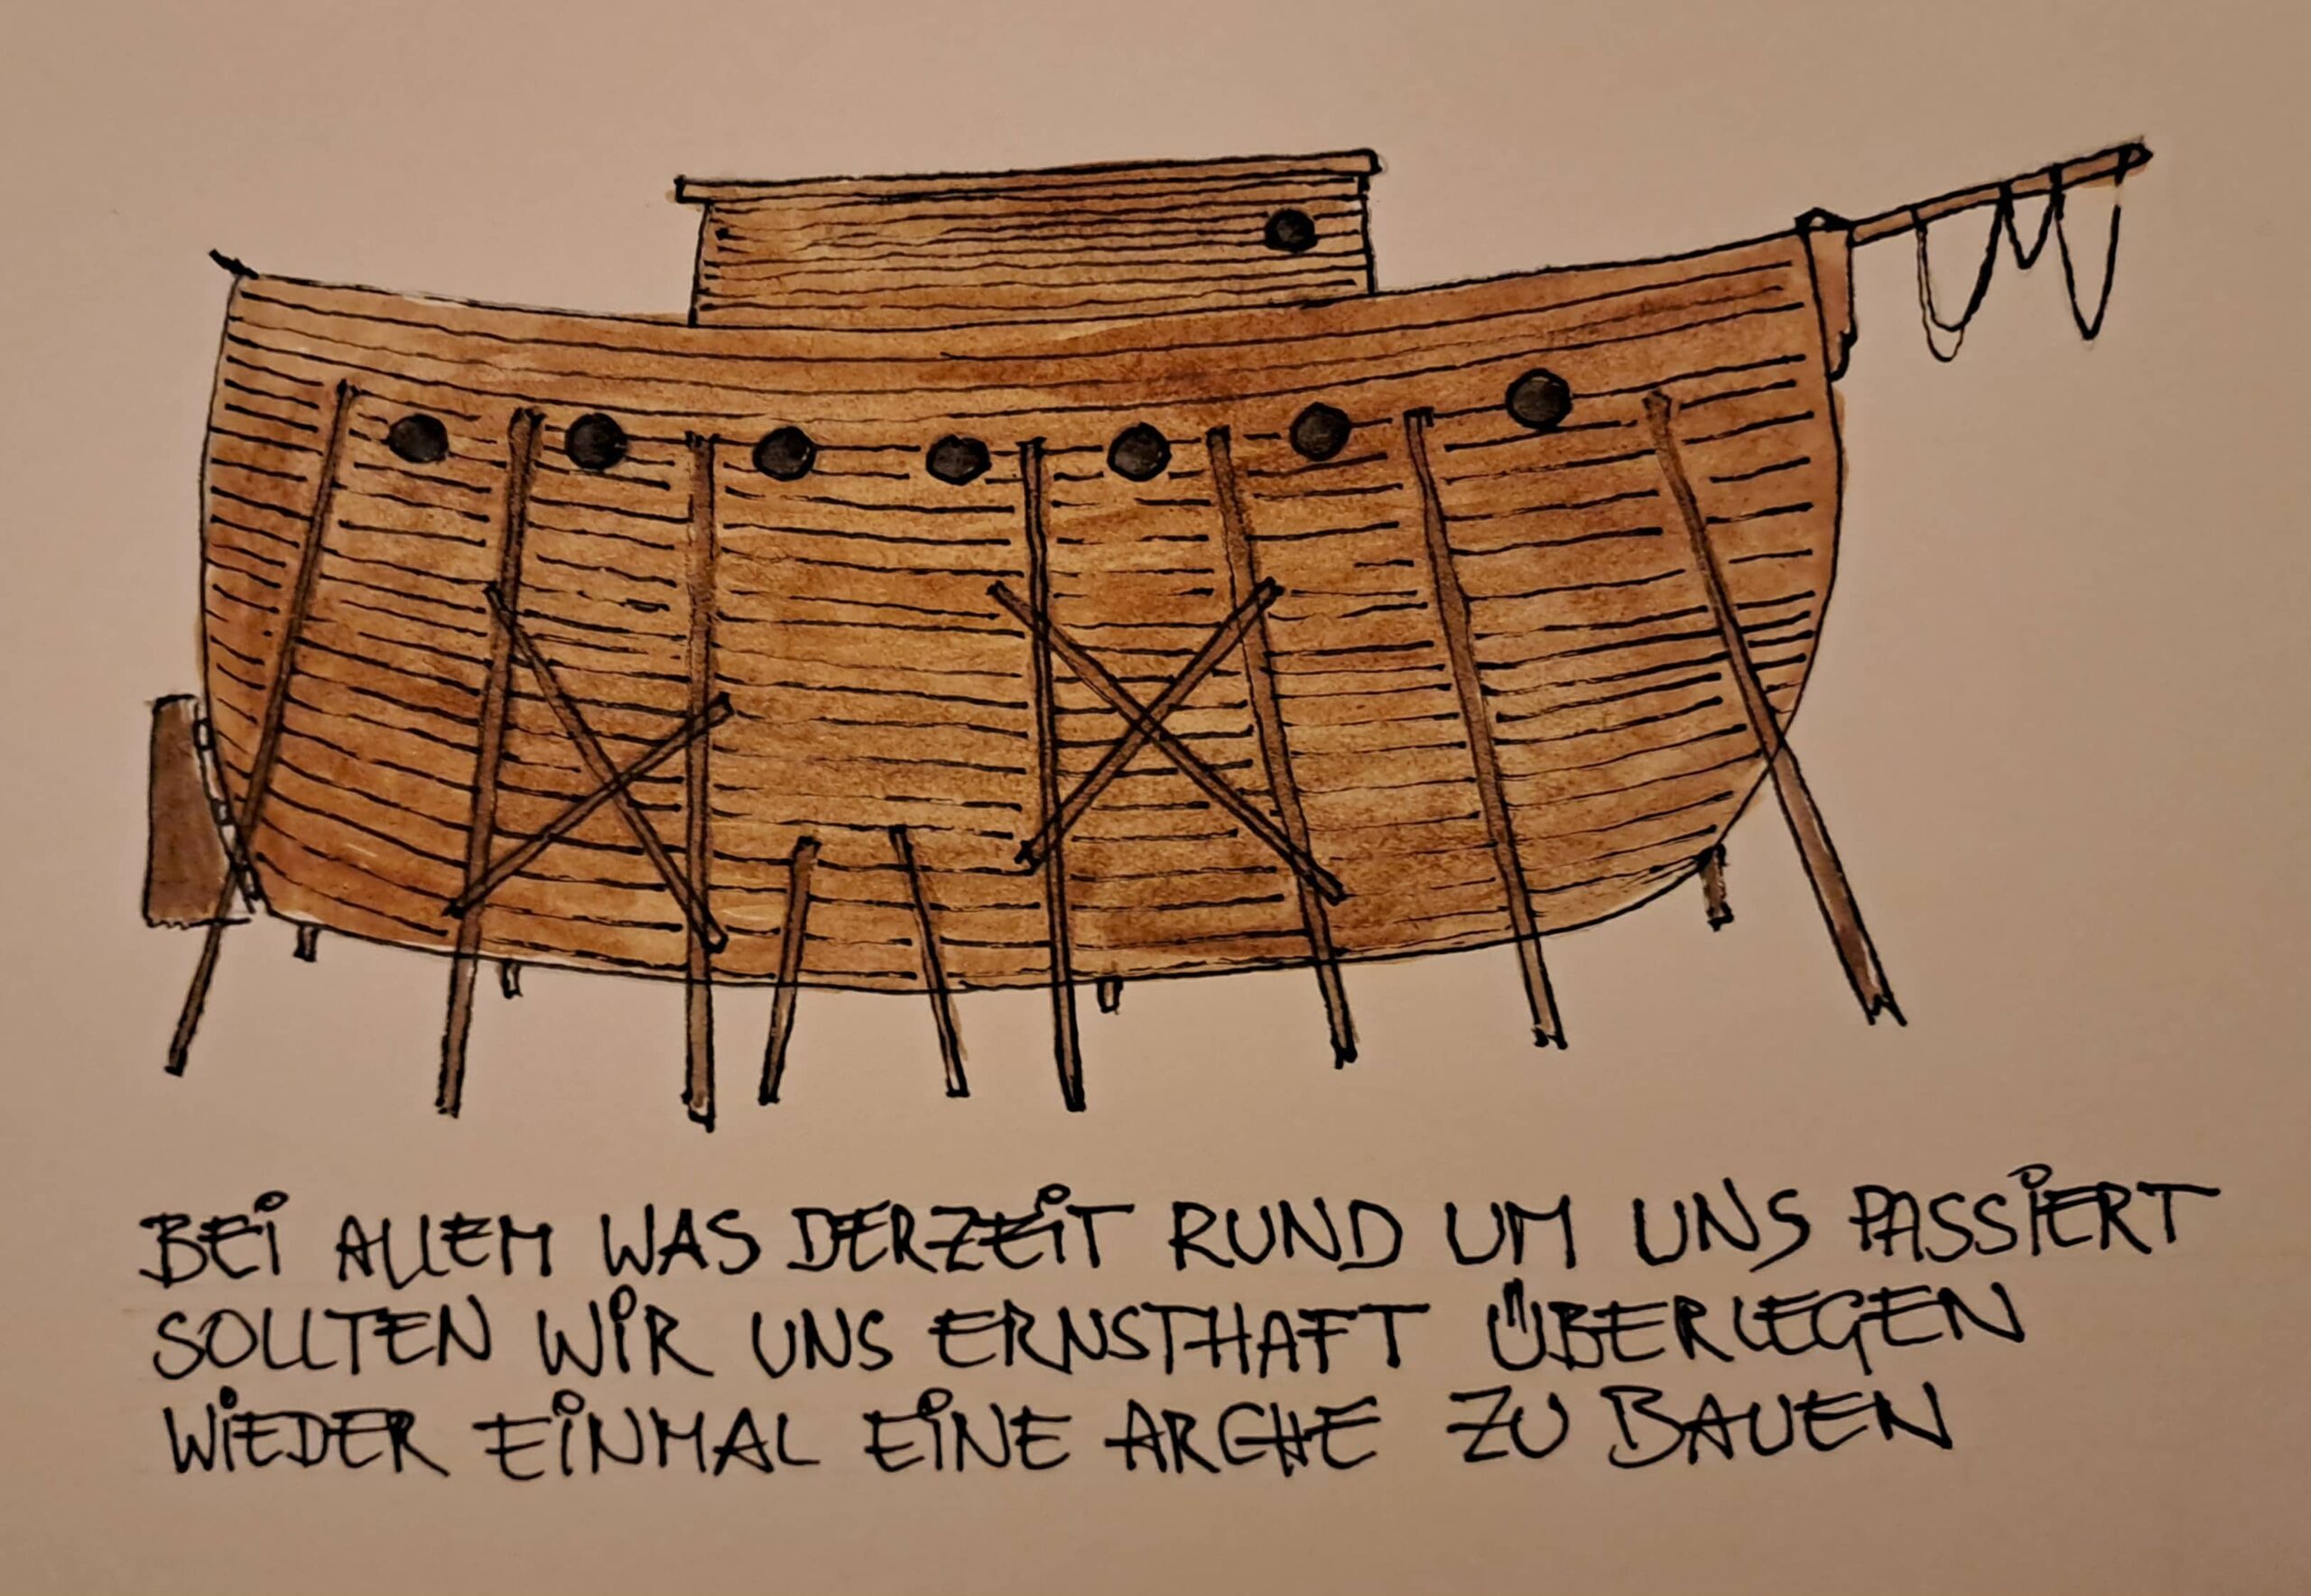 BEI ALLEM WAS DERZEIT RUND UM UNS PASSIERT
SOLLTEN WIR UNS ERNSTHAFT ÜBERLEGEN
WIEDER EINMAL EINE ARCHE ZU BAUEN